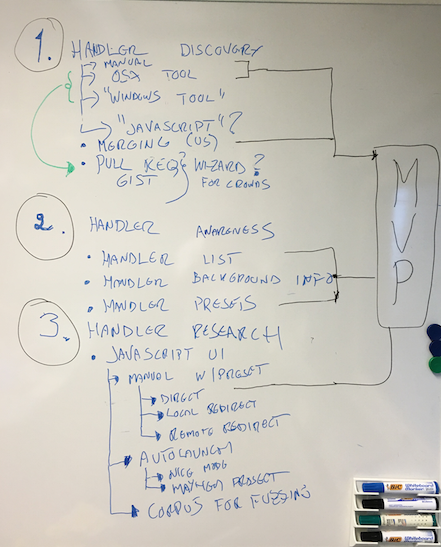 1. HANDLER DISCOVERY
→ MANUAL
→ OSX TOOL
→ "WINDOWS TOOL"
→ "JAVASCRIPT"?
• MERGING (US)
• PULL REQ? WIZARD?
GIST FOR CROWDS
2. HANDLER AWARENESS
• HANDLER LIST
• HANDLER BACKGROUND INFO
• HANDLER PRESETS
3. HANDLER RESEARCH
• JAVASCRIPT UI
→ MANUAL W/PRESET
→ DIRECT
→ LOCAL REDIRECT
→ REMOTE REDIRECT
→ AUTOLAUNCH
→ NICE MODE
→ MAYHEM PROJECT
→ CORPUS FOR FUZZING
MVP
BIC
BIC
BIC